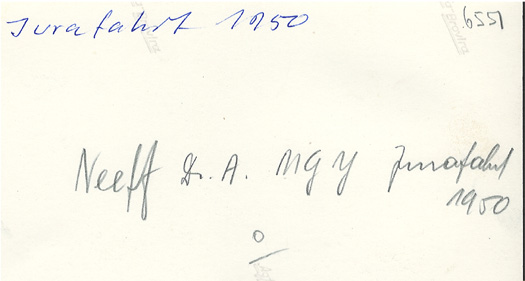 Jurafahrt 1950
6551
Neeff Dr. A. MG Y Jurafahrt
1950